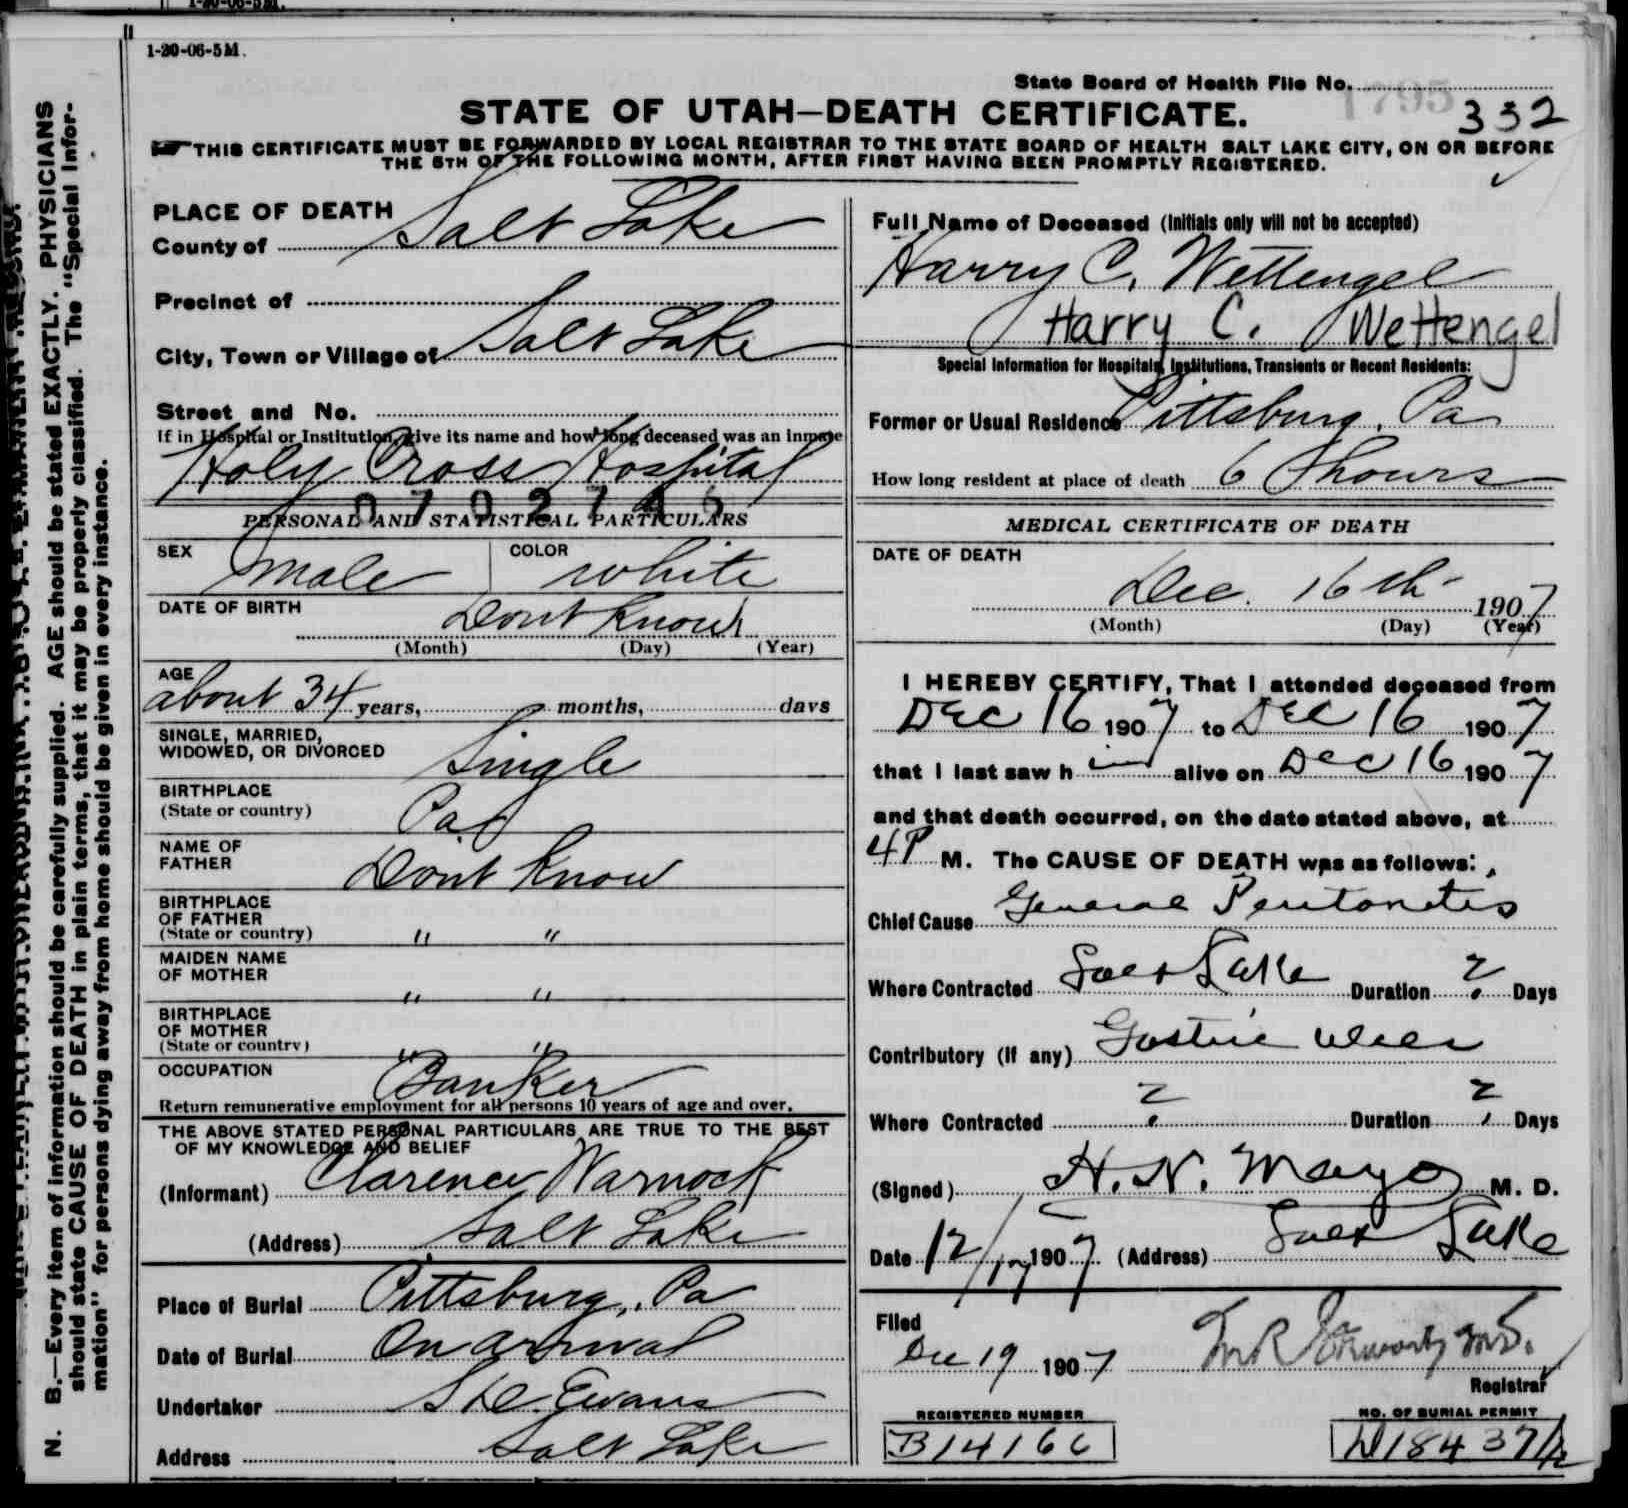 1-20-06-5M.
1-20-06-5M.
State Board of Health File No.
1795
332
STATE OF UTAH—DEATH CERTIFICATE.
THIS CERTIFICATE MUST BE FORWARDED BY LOCAL REGISTRAR TO THE STATE BOARD OF HEALTH SALT LAKE CITY, ON OR BEFORE
THE 5TH OF THE FOLLOWING MONTH, AFTER FIRST HAVING BEEN PROMPTLY REGISTERED.
N. B.—Every item of information should be carefully supplied. AGE should be stated EXACTLY. PHYSICIANS
should state CAUSE OF DEATH in plain terms, that it may be properly classified. The "Special Infor-
mation" for persons dying away from home should be given in every instance.
PLACE OF DEATH
County of Salt Lake
Precinct of
City, Town or Village of Salt Lake
Street and No.
If in Hospital or Institution, give its name and how long deceased was an inmate
Holy Cross Hospital
PERSONAL AND STATISTICAL PARTICULARS
SEX male COLOR white
DATE OF BIRTH Dont Know
(Month) (Day) (Year)
AGE
about 34 years, months, days
SINGLE, MARRIED,
WIDOWED, OR DIVORCED Single
BIRTHPLACE
(State or country) Pa
NAME OF
FATHER Dont Know
BIRTHPLACE
OF FATHER
(State or country) " "
MAIDEN NAME
OF MOTHER
" "
BIRTHPLACE
OF MOTHER
(State or country) " "
OCCUPATION Banker
Return remunerative employment for all persons 10 years of age and over.
THE ABOVE STATED PERSONAL PARTICULARS ARE TRUE TO THE BEST
OF MY KNOWLEDGE AND BELIEF
(Informant) Clarence Warnock
(Address) Salt Lake
Place of Burial Pittsburg, Pa
Date of Burial On arrival
Undertaker Evans
Address Salt Lake
Full Name of Deceased (Initials only will not be accepted)
Harry C. Wettengel
Harry C. Wettengel
Special Information for Hospitals, Institutions, Transients or Recent Residents:
Former or Usual Residence Pittsburg, Pa
How long resident at place of death 6 hours
MEDICAL CERTIFICATE OF DEATH
DATE OF DEATH
Dec. 16th 1907
(Month) (Day) (Year)
I HEREBY CERTIFY, That I attended deceased from
Dec 16 1907 to Dec 16 1907
that I last saw him alive on Dec 16 1907
and that death occurred, on the date stated above, at
4P M. The CAUSE OF DEATH was as follows:
Chief Cause General Peritonitis
Where Contracted Salt Lake Duration ? Days
Contributory (if any) Gastric Ulcer
Where Contracted ? Duration ? Days
(Signed) H. N. Mayo M. D.
Date 12/17 1907 (Address) Salt Lake
Filed
Dec 19 1907
Registrar
REGISTERED NUMBER
B14166
NO. OF BURIAL PERMIT